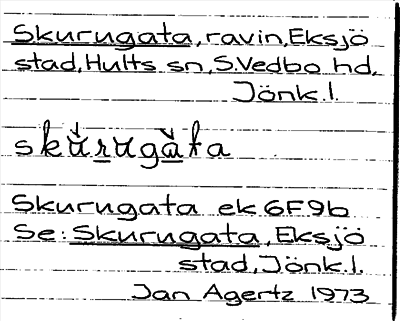 Skurugata, ravin, Eksjö
stad, Hults sn, S. Vedbo hd,
Jönk.l.
skùrugàta
Skurugata ek 6F9b
Se: Skurugata, Eksjö
stad, Jönk.l.
Jan Agertz 1973